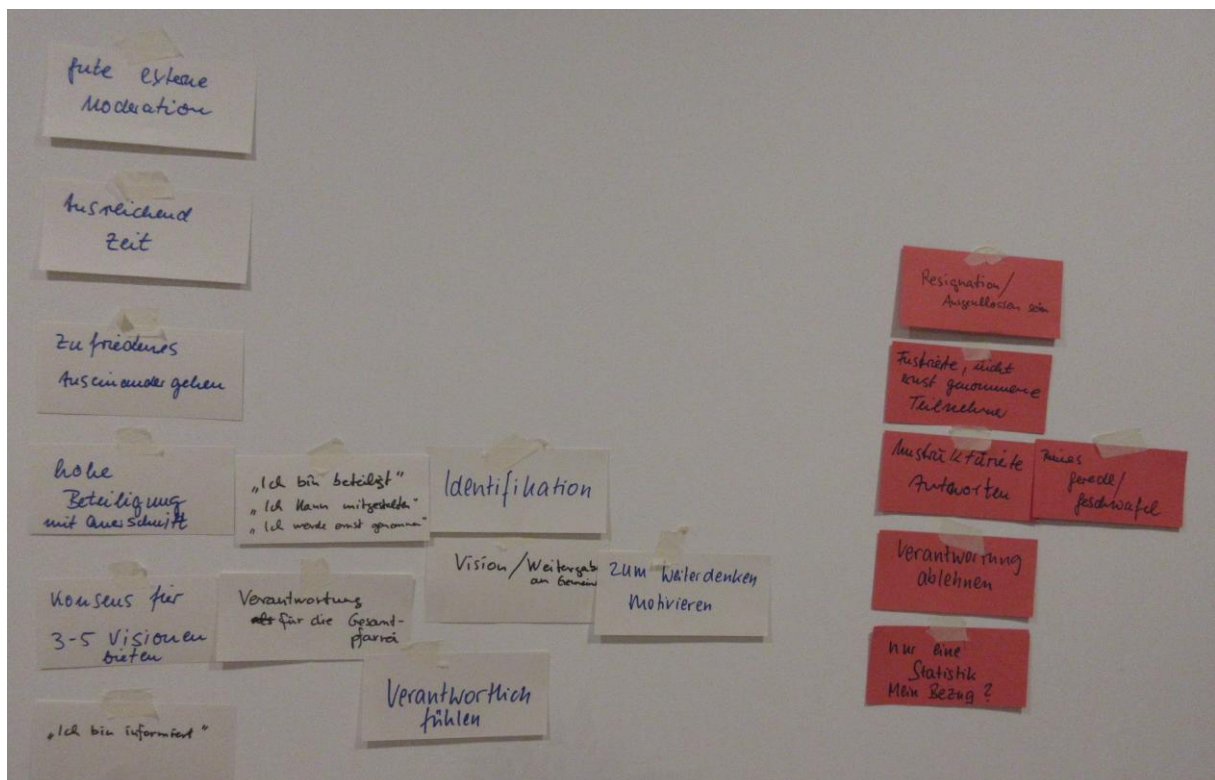 gute externe
Moderation
Ausreichend
Zeit
Zufriedenes
Auseinandergehen
hohe
Beteiligung
mit Querschnitt
„Ich bin beteiligt"
„Ich kann mitgestalten"
„Ich werde ernst genommen"
Identifikation
Vision/Weitergabe
an Gemein
zum Weiterdenken
Motivieren
Konsens für
3-5 Visionen
bieten
Verantwortung
für die Gesamt-
pfarrei
Verantwortlich
fühlen
„Ich bin informiert"
Resignation/
Ausgeschlossen sein
Frustrierte, nicht
ernst genommene
Teilnehmer
Unstrukturierte
Antworten
gerede/
geschwafel
Verantwortung
ablehnen
nur eine
Statistik
Mein Bezug?